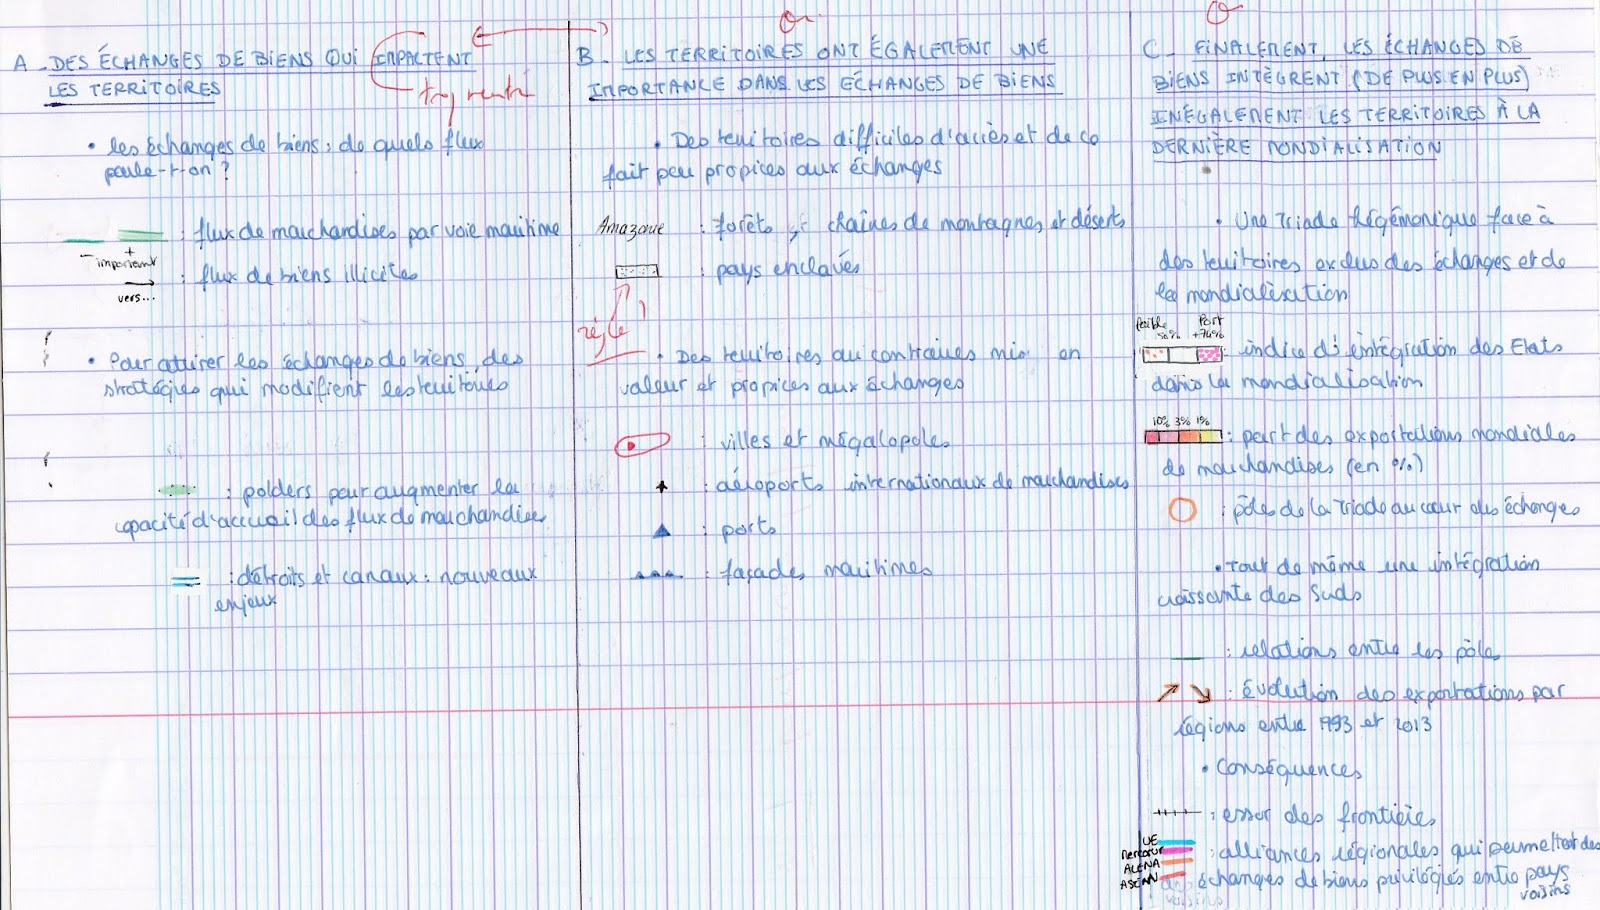 A - DES ÉCHANGES DE BIENS QUI IMPACTENT
LES TERRITOIRES
• Les échanges de biens : de quels flux
parle-t-on ?
: flux de marchandises par voie maritime
- important +
: flux de biens illicites
vers...
• Pour attirer les échanges de biens, des
stratégies qui modifient les territoires
: polders pour augmenter la
capacité d'accueil des flux de marchandises
: détroits et canaux : nouveaux
enjeux
B - LES TERRITOIRES ONT ÉGALEMENT UNE
IMPORTANCE DANS LES ÉCHANGES DE BIENS
• Des territoires difficiles d'accès et de ce
fait peu propices aux échanges
Amazonie : forêts, chaînes de montagnes et déserts
: pays enclavés
règle !
• Des territoires au contraires mis en
valeur et propices aux échanges
: villes et mégalopoles
: aéroports internationaux de marchandises
: ports
: façades maritimes
C - FINALEMENT, LES ÉCHANGES DE
BIENS INTÈGRENT (DE PLUS EN PLUS)
INÉGALEMENT LES TERRITOIRES À LA
DERNIÈRE MONDIALISATION
• Une Triade hégémonique face à
des territoires exclus des échanges et de
la mondialisation
faible 50% Fort +76%
: indice d'intégration des Etats
dans la mondialisation
10% 3% 1%
: part des exportations mondiales
de marchandises (en %)
: pôles de la Triade au cœur des échanges
• Tout de même une intégration
croissante des Suds
: relations entre les pôles
: évolution des exportations par
régions entre 1993 et 2013
• Conséquences
: essor des frontières
UE
Mercosur
ALENA
ASEAN
: alliances régionales qui permettent des
échanges de biens privilégiés entre pays
voisins